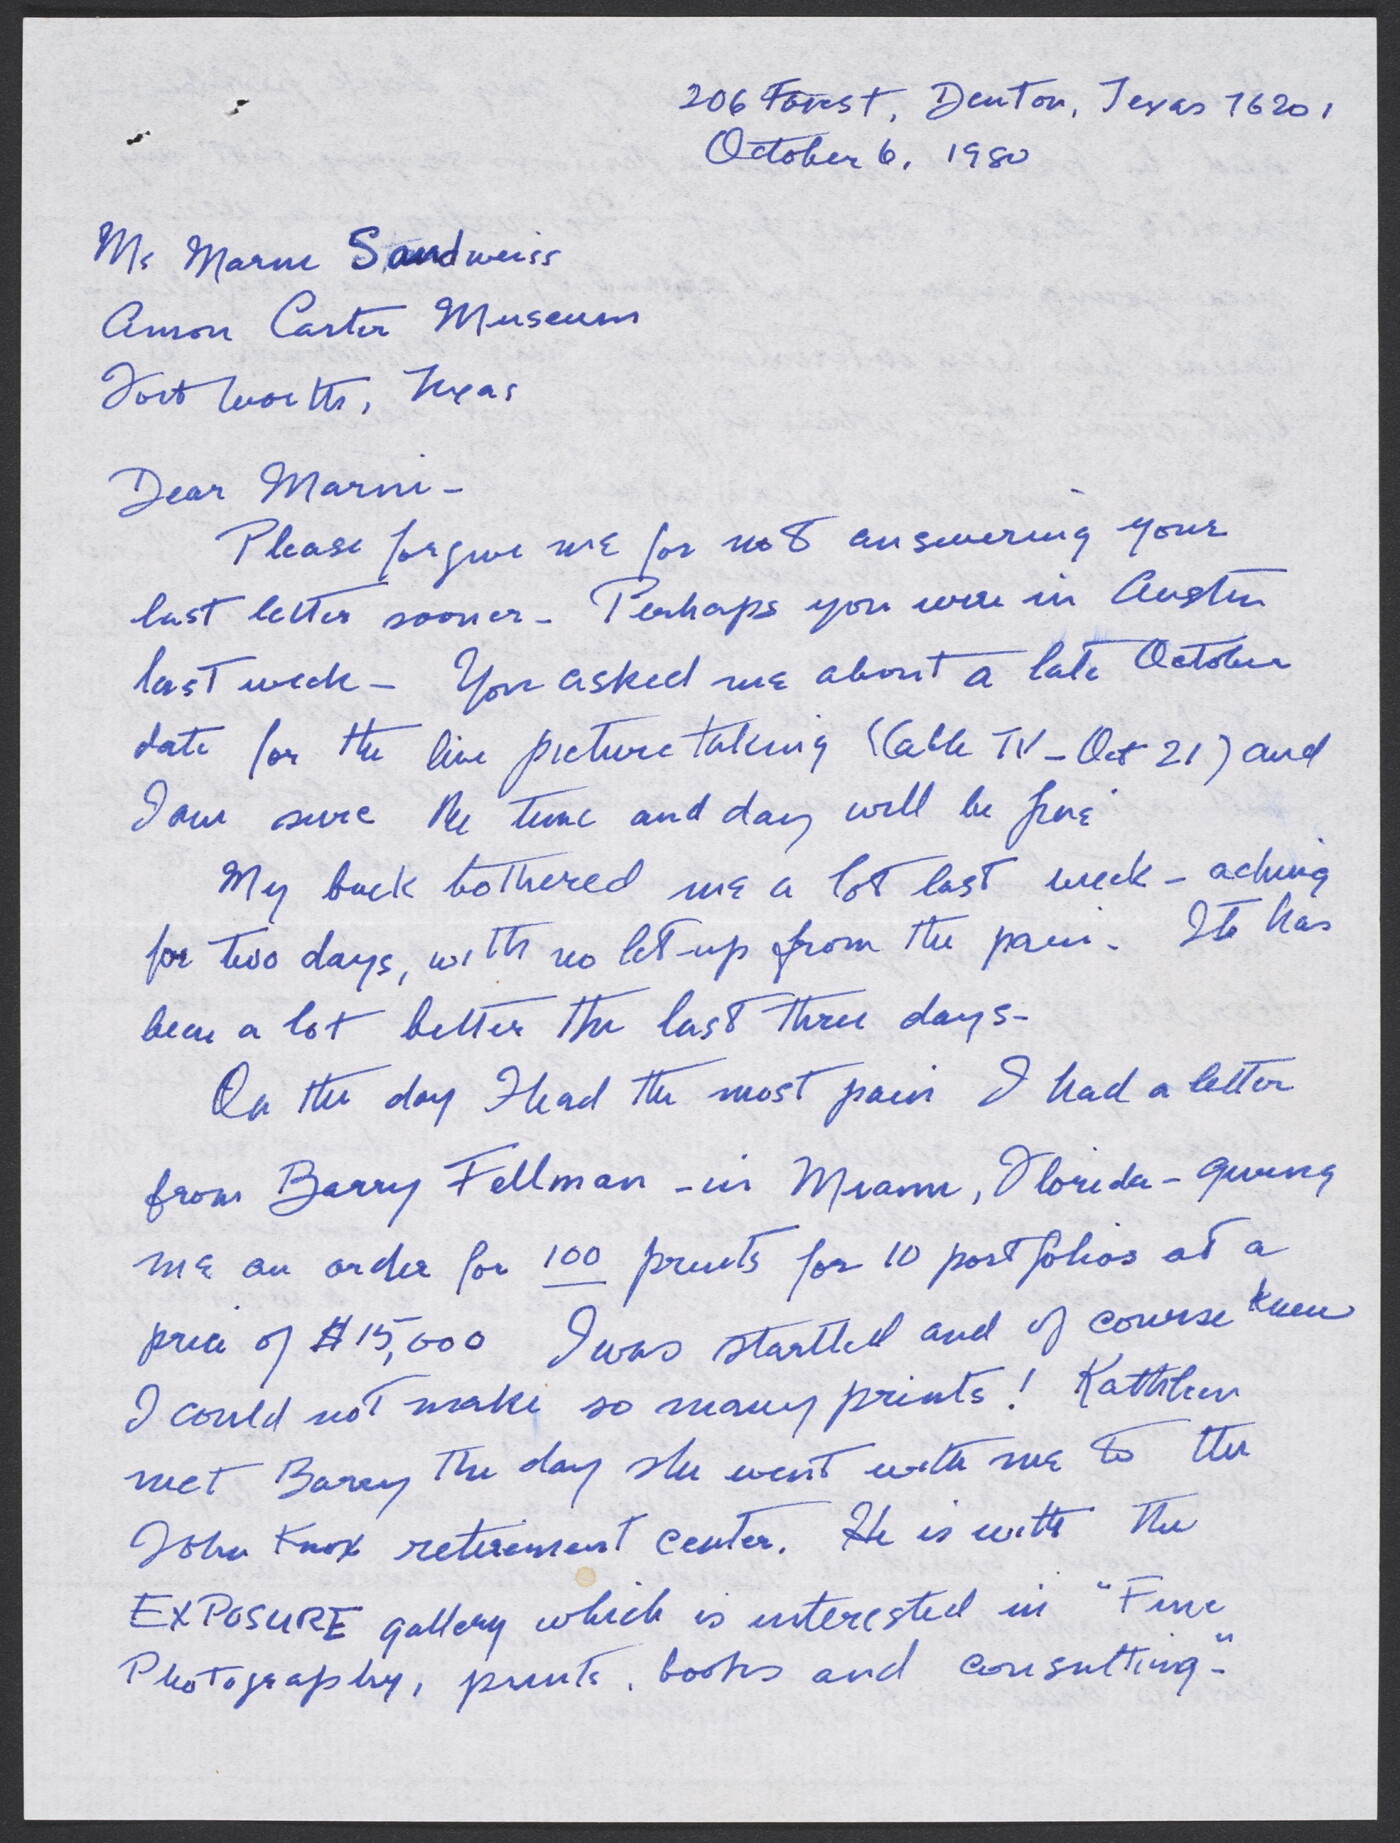 206 Forest, Denton, Texas 76201
October 6, 1980
Ms Marni Sandweiss
Amon Carter Museum
Fort Worth, Texas
Dear Marni -
Please forgive me for not answering your
last letter sooner - Perhaps you were in Austin
last week - You asked me about a late October
date for the live picture taking (Cable TV - Oct 21) and
I am sure the time and day will be fine
My back bothered me a lot last week - aching
for two days, with no let-up from the pain. It has
been a lot better the last three days -
On the day I had the most pain I had a letter
from Barry Fellman - in Miami, Florida - giving
me an order for 100 prints for 10 portfolios at a
price of $15,000 I was startled and of course knew
I could not make so many prints! Kathleen
met Barry the day she went with me to the
John Knox retirement center. He is with the
EXPOSURE gallery which is interested in "Fine
Photography, prints, books and consulting -"